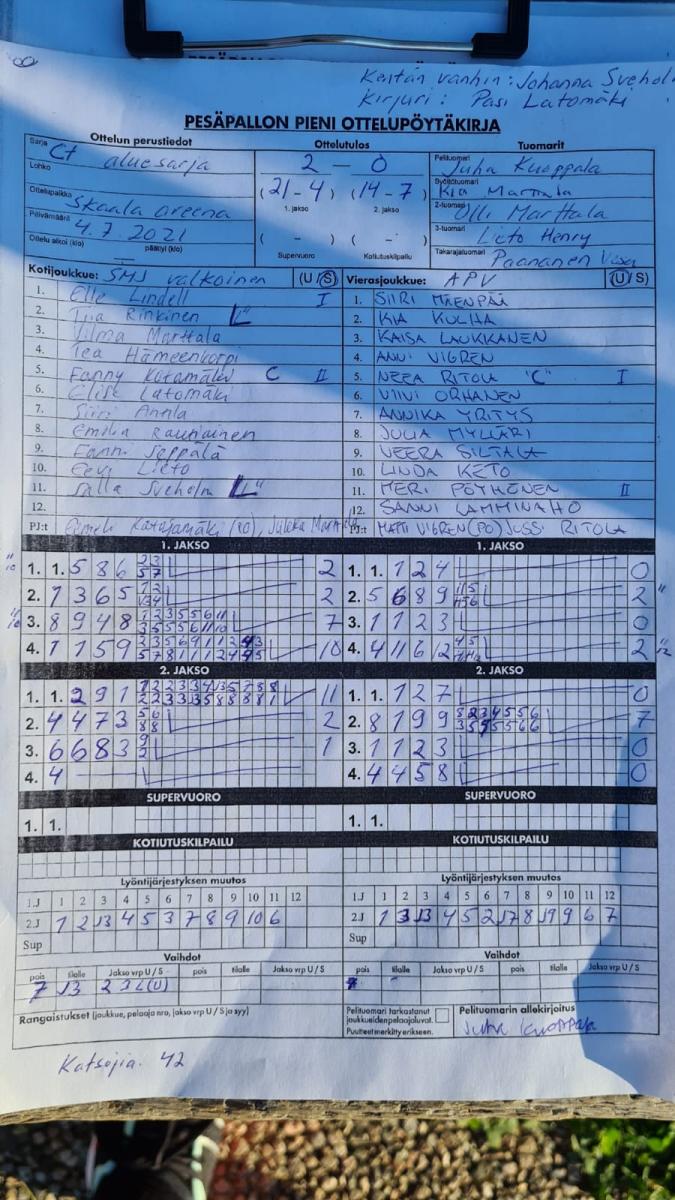 Kentän vanhin: Johanna Sveholm
Kirjuri: Pasi Latomäki
PESÄPALLON PIENI OTTELUPÖYTÄKIRJA
Ottelun perustiedot Ottelutulos Tuomarit
Sarja aluesarja 2 - 0 Pelituomari Juha Kuoppala
Lohko (21-4) (14-7) Syöttötuomari Kia Marttala
Ottelupaikka Skaala areena 1. jakso 2. jakso 2-tuomari Olli Marttala
Päivämäärä 4.7.2021 ( - ) ( - ) 3-tuomari Lieto Henry
Ottelu alkoi (klo) päättyi (klo) Supervuoro Kotiutuskilpailu Takarajatuomari Paananen
Kotijoukkue: SMJ valkoinen (U/S) Vierasjoukkue: APV (U/S)
1. Elle Lindell I 1. SIIRI MÄENPÄÄ
2. Tiia Rinkinen "L" 2. KIA KULHA
3. Vilma Marttala 3. KAISA LAUKKANEN
4. Tea Hämeenkorpi 4. ANNI VIGREN
5. Fanny Katamäki C II 5. NEEA RITOLA "C" I
6. Elise Latomäki 6. VIINI ORHANEN
7. Siiri Annla 7. ANNIKA YRITYS
8. Emilia Rautiainen 8. JULIA MYLLÄRI
9. Fanni Seppälä 9. VEERA SILTALA
10. Eevi Lieto 10. LINDA KETO
11. Salla Sveholm "L" 11. MERI PÖYHÖNEN II
12. 12. SANNI LAMMINAHO
PJ:t Katajamäki (PO), PJ:t MATTI VIGREN (PO) JUSSI RITOLA
1. JAKSO 1. JAKSO
1. 1. 5 8 6 2 1. 1. 1 2 4 0
2. 1 3 6 5 2 2. 5 6 8 9 2
3. 8 9 4 8 7 3. 1 1 2 3 0
4. 1 1 5 9 10 4. 4 11 6 12 2
2. JAKSO 2. JAKSO
1. 1. 2 9 1 11 1. 1. 1 2 7 0
2. 4 4 7 3 2 2. 8 1 9 9 7
3. 6 6 8 3 1 3. 1 1 2 3 0
4. 4 4. 4 4 5 8 0
SUPERVUORO SUPERVUORO
1. 1. 1. 1.
KOTIUTUSKILPAILU KOTIUTUSKILPAILU
Lyöntijärjestyksen muutos Lyöntijärjestyksen muutos
1.J 1 2 3 4 5 6 7 8 9 10 11 12 1.J 1 2 3 4 5 6 7 8 9 10 11 12
2.J 1 2 J3 4 5 3 7 8 9 10 6 2.J 1 3 J3 4 5 2 J7 8 J9 9 6 7
Sup Sup
Vaihdot Vaihdot
pois tilalle Jakso vrp U / S pois tilalle Jakso vrp U / S pois tilalle Jakso vrp U / S pois tilalle Jakso vrp U / S
7 J3
Rangaistukset (joukkue, pelaaja nro, jakso vrp U / S ja syy) Pelituomari tarkastanut joukkueiden pelaajaluvat. Pelituomarin allekirjoitus
Puutteet merkitty erikseen. Juha Kuoppala
Katsojia. 42